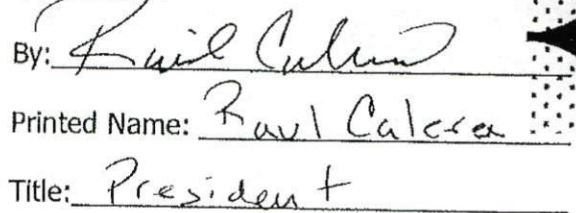 By: Raul Calera
Printed Name: Raul Calera
Title: President